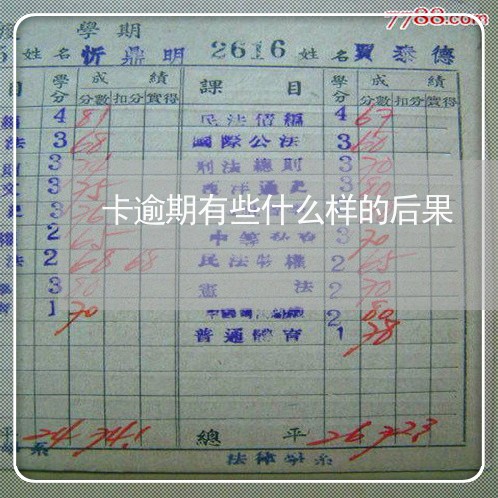 7788.com
學期
姓名 忻鼎明 2616 姓名 賈泰德
目 學分 成績 課目 學分 成績
分數 扣分 實得 分數 扣分 實得
4 81 民法債編 4 67
法 3 68 國際公法 3 60
3 刑法總則 3 70
文 3 75 西洋通史 3 80
卡逾期有些什么样的后果
2 65 3 70
法 2 68 68 民法物權 2 65
3 80 憲法 2 70
1 70 2 80
普通體育 1 78
平 24 74.1 總平 26 72.3
系 法律學系